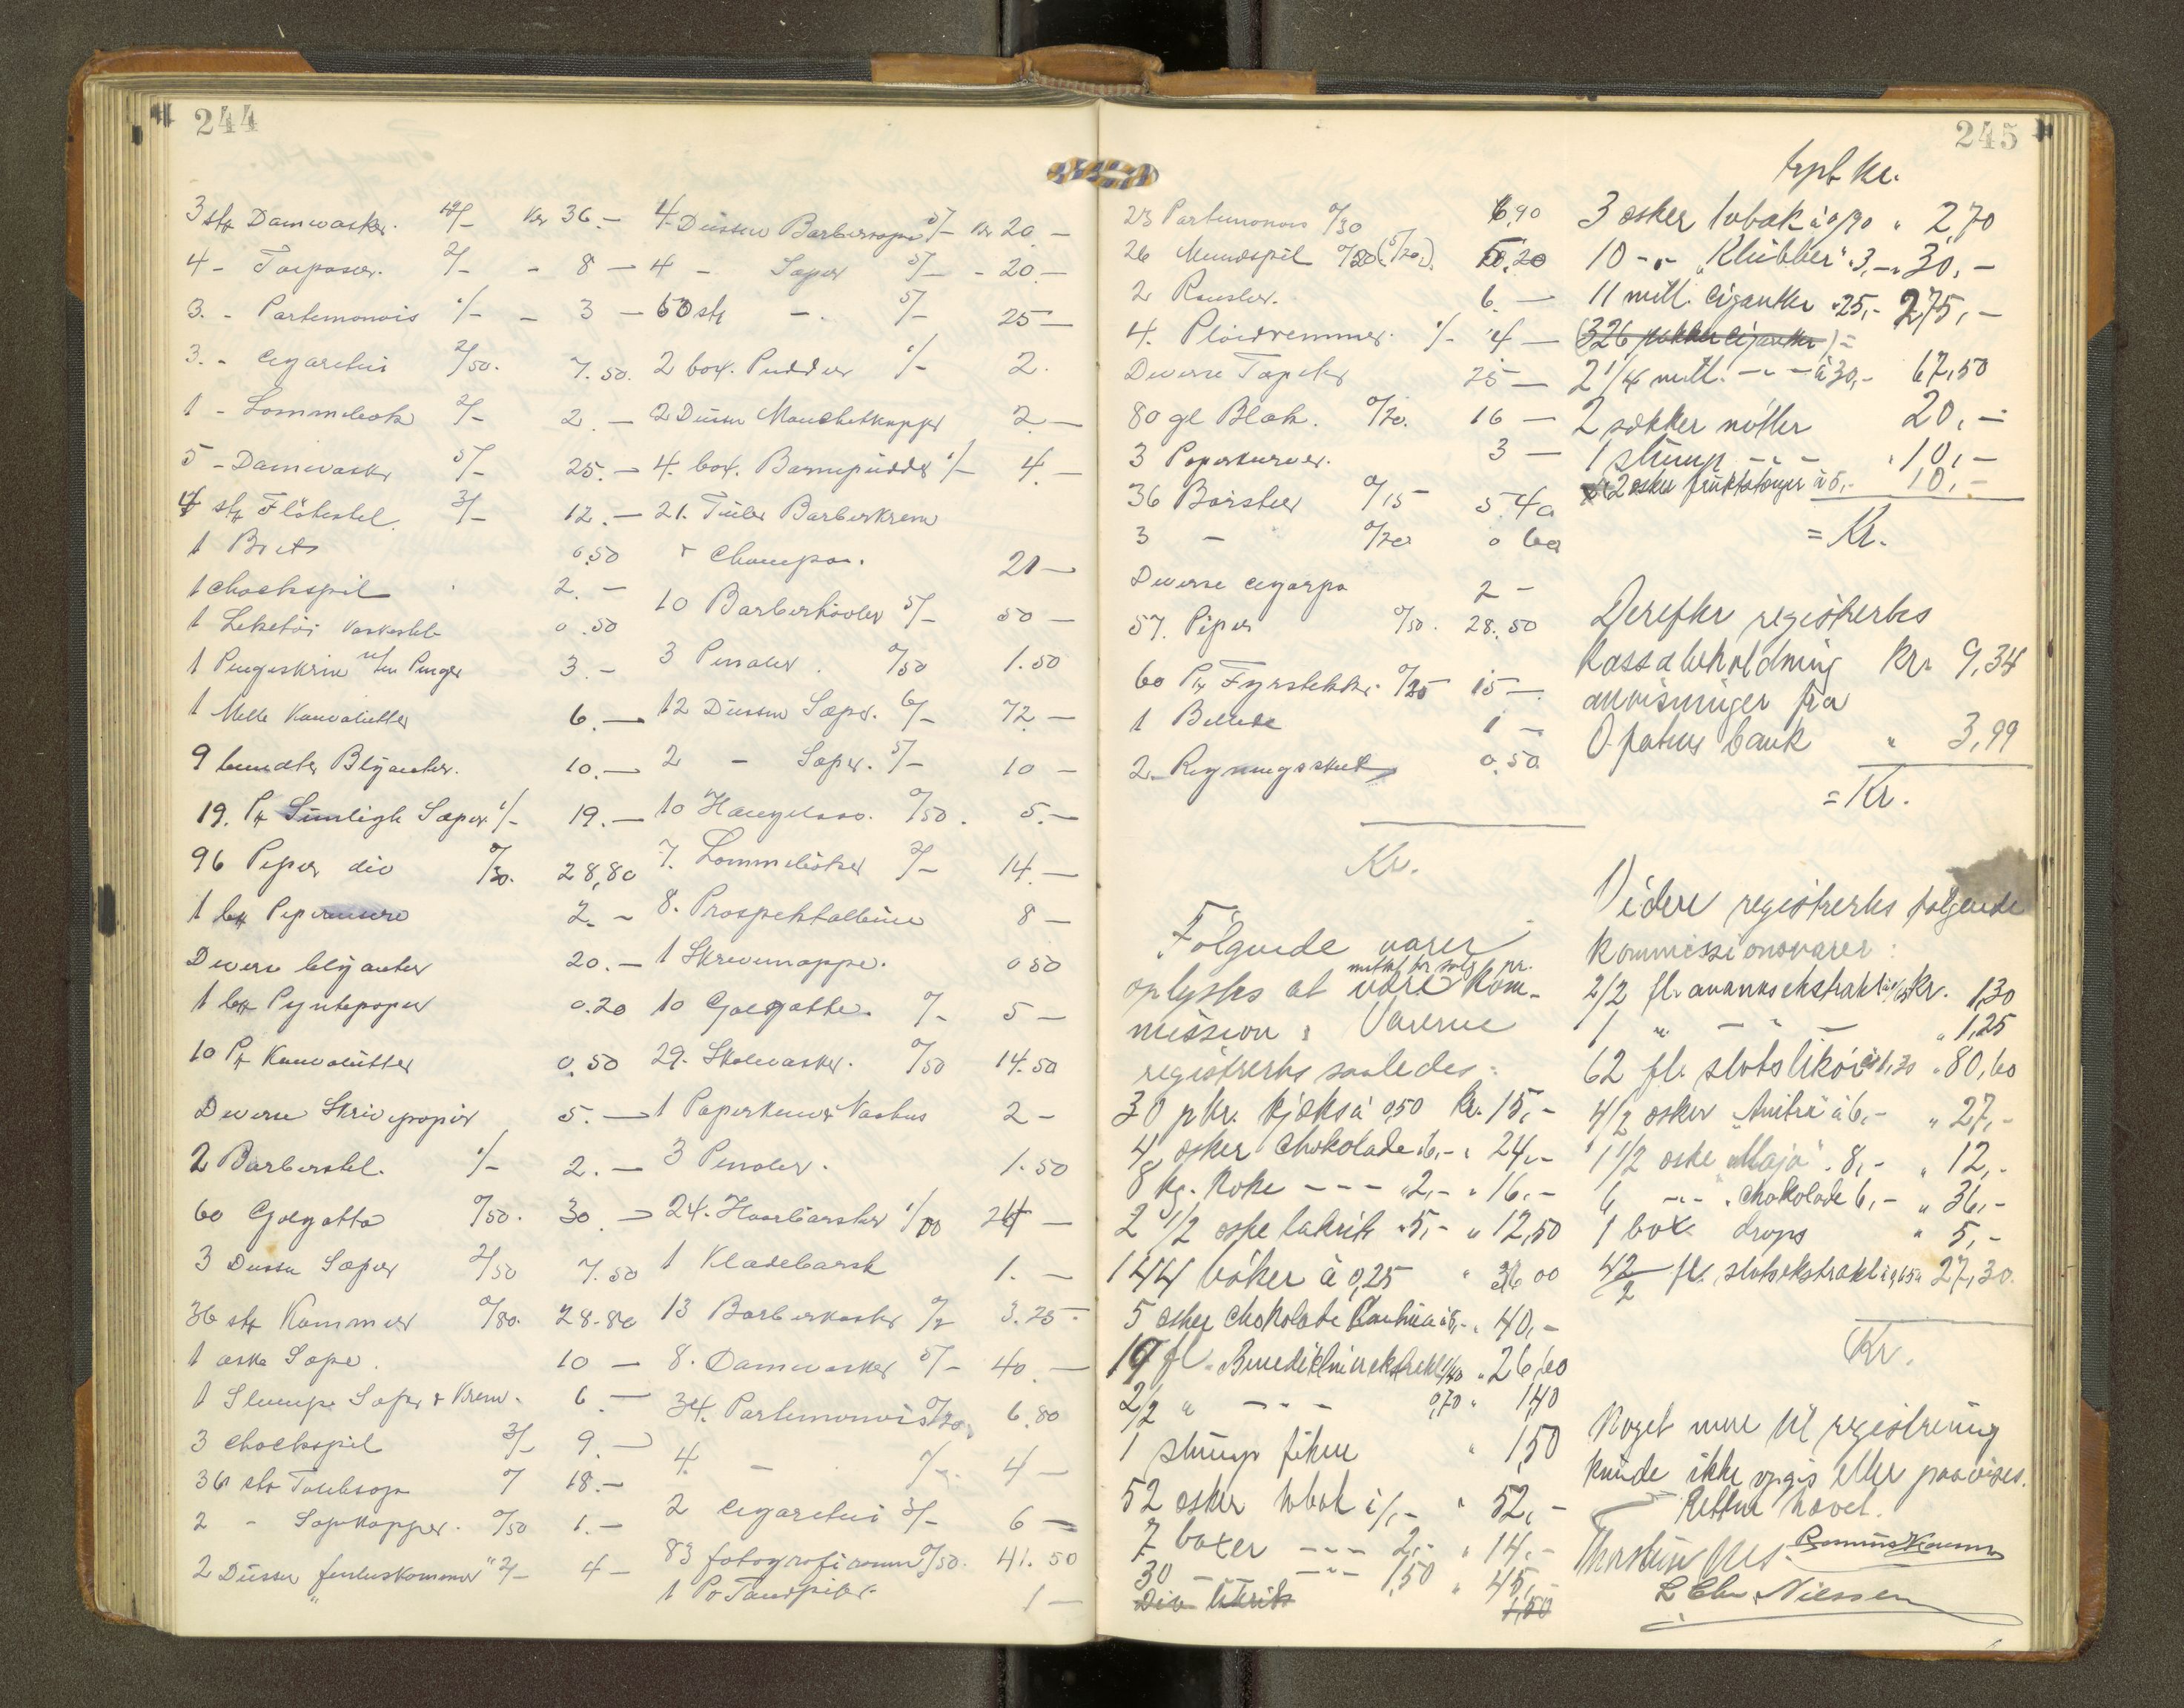 244
3 stk Damvasker. 12/- Kr 36.-
4 - Toiposer. 2/- - 8 -
3. - Portemonois 1/- - 3 -
3. - Cigaretui 2/50. 7.50.
1 - Lommebok 2/- 2.-
5 - Damevasker 5/- 25.-
4 stk Flötestel. 3/- 12.-
1 Bret 0.50
1 chackspil 2.-
1 Leketöi Vaskestel 0.50
1 Pengeskrin u/en Penger 3.-
1 Mille Konvolutter 6.-
9 bundter Blyanter. 10.-
19. Pk Sunligh Saper. 1/- 19.-
96 Piper div 0/30. 28,80
1 bx 2.-
Diverse blyanter 20.-
1 bx Pyntepaper 0.20
10 Pk Konvolutter 0.50
Diverse Skrivepapir 5.-
2 Barberstel. 1/- 2.-
60 Golgotta 0/50. 30.-
3 Dussin Saper 2/50 7.50
36 stk Kammer 0/80. 28.80
1 æske Sape. 10 -
1 Slump Saper & Krem. 6.-
3 chackspil 3/- 9.-
36 stk 18.-
2 - Sapekopper. 0/50 1.-
2 Dussin 2/- 4 -
4 Dussin Barbersaper 5/- Kr 20.-
4 - Saper 5/- - 20.-
50 stk -. 25 -
2 box. Pudder 1/- 2.
2 Dussin Manchetknapper 2.-
4. box. Barnepudder 1/- 4.-
21. Tuber Barberkrem
& Champo. 21 -
10 Barberhövler 5/- 50 -
3 Penaler. 0/50 1.50
12 Dussin Saper. 6/- 72 -
2 - Saper. 5/- 10 -
10 Hængelaas. 0/50. 5.-
7. Lommeböker 2/- 14.-
8. Prospektalbum 8 -
1 Skrivemappe. 0.50
10 Golgotta. 5 -
29. Skolevasker. 0/50 14.50
1 Paperkurv Vaskus 2 -
3 Penaler. 1.50
24. Haarbørster 1/00 24 -
1 Kladebørst 1.-
13 Barberkoster 3.25
8. Damvasker 5/- 40.-
34. Portemonois 0/20. 6.80
4. - 4 -
2 Cigaretui 3/- 6 -
83 fotografiramm 0/50. 41.50
1 Pr 1 -
245
23 Portemonois 0/30 6,90
26 Mundspil 0/20 5.20
2 6.-
4. Pleidremmer. 1/- 4 -
Diverse Tapeter 25 -
80 gl Blæk. 0/20. 16 -
3 Paperkurver. 3 -
36 Børster 0/15 5.40
3 - 0/20 0.60
Diverse 2 -
57. Piper 0/50. 28.50
60 Pk Fyrstikker. 0/25 15 -
1 Billede 1 -
2 0.50
Kr.
Følgende varer
oplystes at være mottat for salg pr. kom-
mission. Varerne
registrertes saaledes:
30 pkr. kjæks à 0,50 kr. 15,-
4 æsker chokolade " 6,- " 24,-
8 kg. Koke - - - " 2,- " 16,-
2 1/2 æske lakrits " 5,- " 12,50
144 böker à 0,25 " 36,00
5 æsker chokolade à 8,- " 40,-
19 fl. Benediktinerekstrakt 1/40 " 26,60
2/2 " - - - 0,70 " 1,40
1 slump fiken " 1,50
52 æsker tobak à 1,- " 52,-
7 boxer - - - 2,- " 14,-
30 - - - 1,50 " 45,-
Div lakrits 1,50
trpt kr.
3 æsker tobak à 0/90 " 2,70
10 - " "Klubber" " 3,- " 30,-
11 mill. cigaretter " 25,- 275,-
(326 pakker cigaretter) =
2 1/4 mill. - " - à 30,- 67,50
2 sækker nötter 20,-
1 slump - " - " 10,-
2 æsker fruktstænger à 5,- 10,-
= Kr.
Derefter registrertes
kassabeholdning kr. 9,34
anvisninger fra
bank " 3,99
= Kr.
Videre registrertes følgende
kommissionsvarer:
2/2 fl. ananasekstrakt à 0,65 kr. 1,30
1 " - " - " 1,25
62 fl. slotslikör à 1,30 " 80,60
4 1/2 æsker à 6,- " 27,-
1 1/2 æske "Maja" " 8,- " 12,-
6 - " - " chokolade 6,- " 36,-
1 box drops " 5,-
42/2 fl. slotsekstrakt à 0,65 " 27,30
Kr.
Noget mere til registrering
kunde ikke opgis eller paavises.
Retten hævet.
L Chr Nissen